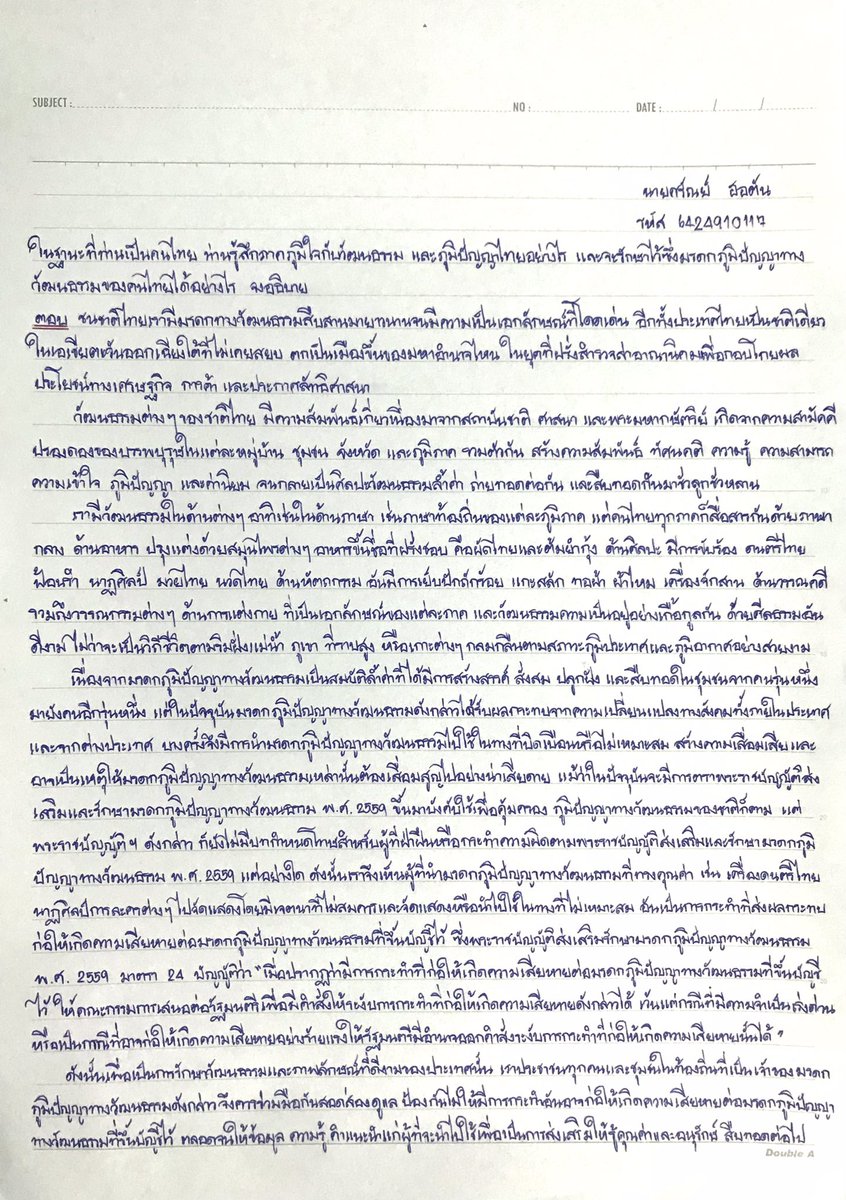 SUBJECT :
NO :
DATE : / /
รหัส 6424910117
ในฐานะที่ท่านเป็นคนไทย ท่านรู้สึกภาคภูมิใจกับวัฒนธรรม และภูมิปัญญาไทยอย่างไร และจะรักษาไว้ซึ่งมรดกภูมิปัญญาทาง
วัฒนธรรมของคนไทยได้อย่างไร จงอธิบาย
ตอบ ชนชาติไทยเรามีมรดกทางวัฒนธรรมสืบสานมายาวนานจนมีความเป็นเอกลักษณ์ที่โดดเด่น อีกทั้งประเทศไทยเป็นชาติเดียว
ในเอเชียตะวันออกเฉียงใต้ที่ไม่เคยสยบ ตกเป็นเมืองขึ้นของมหาอำนาจไหน ในยุคที่ฝรั่งสำรวจล่าอาณานิคมเพื่อกอบโกยผล
ประโยชน์ทางเศรษฐกิจ การค้า และประกาศลัทธิศาสนา
วัฒนธรรมต่างๆของชาติไทย มีความสัมพันธ์เกี่ยวเนื่องมาจากสถาบันชาติ ศาสนา และพระมหากษัตริย์ เกิดจากความสามัคคี
ปรองดองของบรรพบุรุษในแต่ละหมู่บ้าน ชุมชน จังหวัด และภูมิภาค รวมตัวกัน สร้างความสัมพันธ์ ทัศนคติ ความรู้ ความสามารถ
ความเข้าใจ ภูมิปัญญา และค่านิยม จนกลายเป็นศิลปะวัฒนธรรมล้ำค่า ถ่ายทอดต่อกัน และสืบทอดกันมาชั่วลูกชั่วหลาน
เรามีวัฒนธรรมในด้านต่างๆ อาทิเช่นในด้านภาษา เช่นภาษาท้องถิ่นของแต่ละภูมิภาค แต่คนไทยทุกภาคก็สื่อสารกันด้วยภาษา
กลาง ด้านอาหาร ปรุงแต่งด้วยสมุนไพรต่างๆ อาหารขึ้นชื่อที่ฝรั่งชอบ คือผัดไทยและต้มยำกุ้ง ด้านศิลปะ มีการขับร้อง ดนตรีไทย
ฟ้อนรำ นาฏศิลป์ มวยไทย นวดไทย ด้านหัตถกรรม อันมีการเย็บปักถักร้อย แกะสลัก ทอผ้า ผ้าไหม เครื่องจักสาน ด้านวรรณคดี
รวมถึงวรรณกรรมต่างๆ ด้านการแต่งกาย ที่เป็นเอกลักษณ์ของแต่ละภาค และวัฒนธรรมความเป็นอยู่อย่างเกื้อกูลกัน ด้วยศีลธรรมอัน
ดีงาม ไม่ว่าจะเป็นวิถีชีวิตตามริมฝั่งแม่น้ำ ภูเขา ที่ราบสูง หรือเกาะต่างๆ กลมกลืนตามสภาวะภูมิประเทศและภูมิอากาศอย่างสวยงาม
เนื่องจากมรดกภูมิปัญญาทางวัฒนธรรมเป็นสมบัติล้ำค่าที่ได้มีการสร้างสรรค์ สั่งสม ปลูกฝัง และสืบทอดในชุมชนจากคนรุ่นหนึ่ง
มายังคนอีกรุ่นหนึ่ง แต่ในปัจจุบันมรดกภูมิปัญญาทางวัฒนธรรมดังกล่าวได้รับผลกระทบจากความเปลี่ยนแปลงทางสังคมทั้งภายในประเทศ
และจากต่างประเทศ บางครั้งจึงมีการนำมรดกภูมิปัญญาทางวัฒนธรรมไปใช้ในทางที่บิดเบือนหรือไม่เหมาะสม สร้างความเสื่อมเสียและ
อาจเป็นเหตุให้มรดกภูมิปัญญาทางวัฒนธรรมเหล่านั้นต้องเสื่อมสูญไปอย่างน่าเสียดาย แม้ว่าในปัจจุบันจะมีการตราพระราชบัญญัติส่ง
เสริมและรักษามรดกภูมิปัญญาทางวัฒนธรรม พ.ศ. 2559 ขึ้นมาบังคับใช้เพื่อคุ้มครอง ภูมิปัญญาทางวัฒนธรรมของชาติก็ตาม แต่
พระราชบัญญัติฯ ดังกล่าว ก็ยังไม่มีบทกำหนดโทษสำหรับผู้ที่ฝ่าฝืนหรือกระทำความผิดตามพระราชบัญญัติส่งเสริมและรักษามรดกภูมิ
ปัญญาทางวัฒนธรรม พ.ศ. 2559 แต่อย่างใด ดังนั้นเราจึงเห็นผู้ที่นำมรดกภูมิปัญญาทางวัฒนธรรมที่ทางคุณค่า เช่น เครื่องดนตรีไทย
นาฏศิลป์การละครต่างๆ ไปจัดแสดงโดยมีเจตนาที่ไม่สมควรและจัดแสดงหรือนำไปใช้ในทางที่ไม่เหมาะสม อันเป็นการกระทำที่ส่งผลกระทบ
ก่อให้เกิดความเสียหายต่อมรดกภูมิปัญญาทางวัฒนธรรมที่ขึ้นบัญชีไว้ ซึ่งพระราชบัญญัติส่งเสริมรักษามรดกภูมิปัญญาทางวัฒนธรรม
พ.ศ. 2559 มาตรา 24 บัญญัติว่า "เมื่อปรากฏว่ามีการกระทำที่ก่อให้เกิดความเสียหายต่อมรดกภูมิปัญญาทางวัฒนธรรมที่ขึ้นบัญชี
ไว้ ให้คณะกรรมการเสนอต่อรัฐมนตรีเพื่อมีคำสั่งให้ระงับการกระทำที่ก่อให้เกิดความเสียหายดังกล่าวได้ เว้นแต่กรณีที่มีความจำเป็นเร่งด่วน
หรือเป็นกรณีที่อาจก่อให้เกิดความเสียหายอย่างร้ายแรงให้รัฐมนตรีมีอำนาจออกคำสั่งระงับการกระทำที่ก่อให้เกิดความเสียหายนั้นได้"
ดังนั้นเพื่อเป็นการรักษาวัฒนธรรมและภาพลักษณ์ที่ดีงามของประเทศนั้น เราประชาชนทุกคนและชุมชนในท้องถิ่นที่เป็นเจ้าของมรดก
ภูมิปัญญาทางวัฒนธรรมดังกล่าว จึงควรร่วมมือกันสอดส่องดูแล ป้องกันไม่ให้มีการกระทำอันอาจก่อให้เกิดความเสียหายต่อมรดกภูมิปัญญา
ทางวัฒนธรรมที่ขึ้นบัญชีไว้ ตลอดจนให้ข้อมูล ความรู้ คำแนะนำแก่ผู้ที่จะนำไปใช้เพื่อเป็นการส่งเสริมให้รู้คุณค่าและอนุรักษ์ สืบทอดต่อไป
Double A